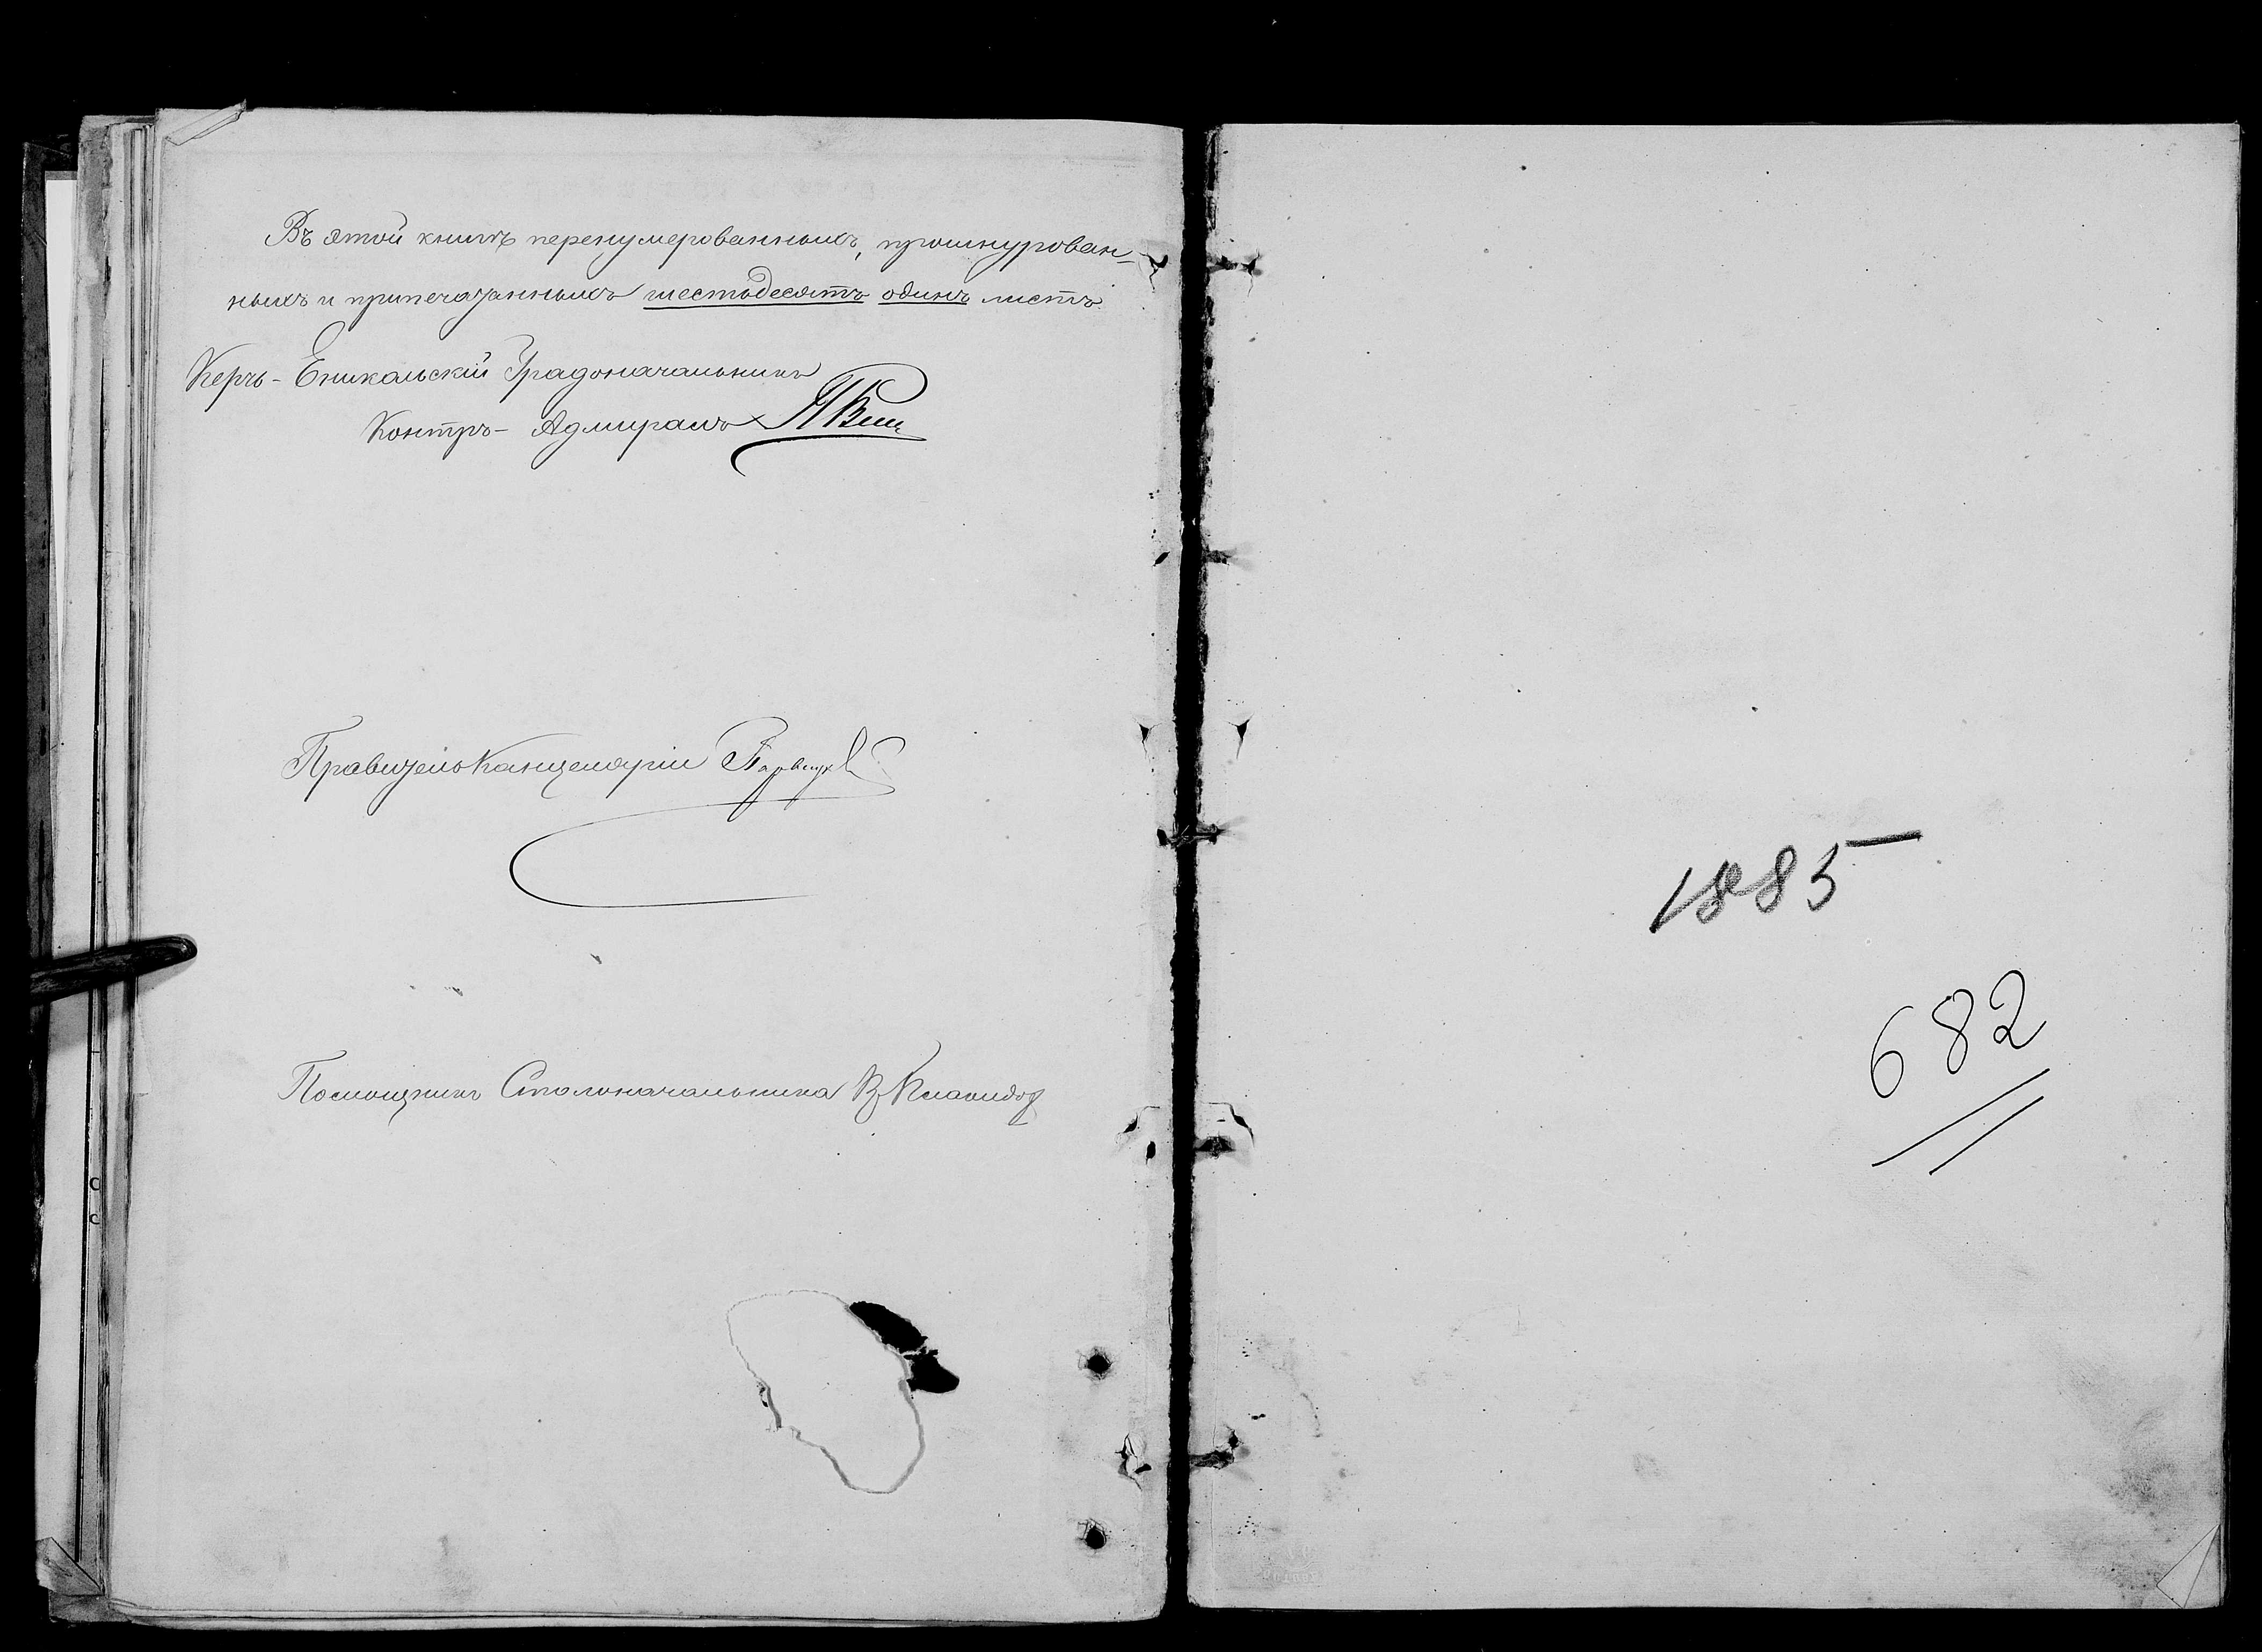 Въ этой книгѣ перенумерованныхъ, прошнурован-
ныхъ и припечатанныхъ шестьдесятъ одинъ листъ.
Керчь-Еникальскій Градоначальникъ
Контръ-Адмиралъ
Правитель Канцеляріи
Помощникъ Столоначальника
1885
682